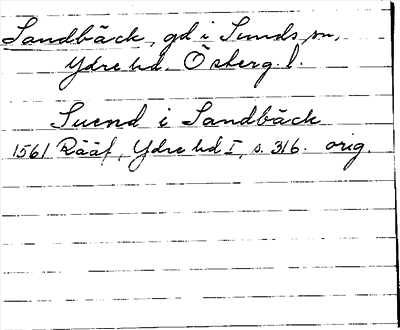 Sandbäck, gd i Sunds sn,
Ydre hd. Östergl.
Suend i Sandbäck
1561 Rääf, Ydre hd I, s. 316. orig.